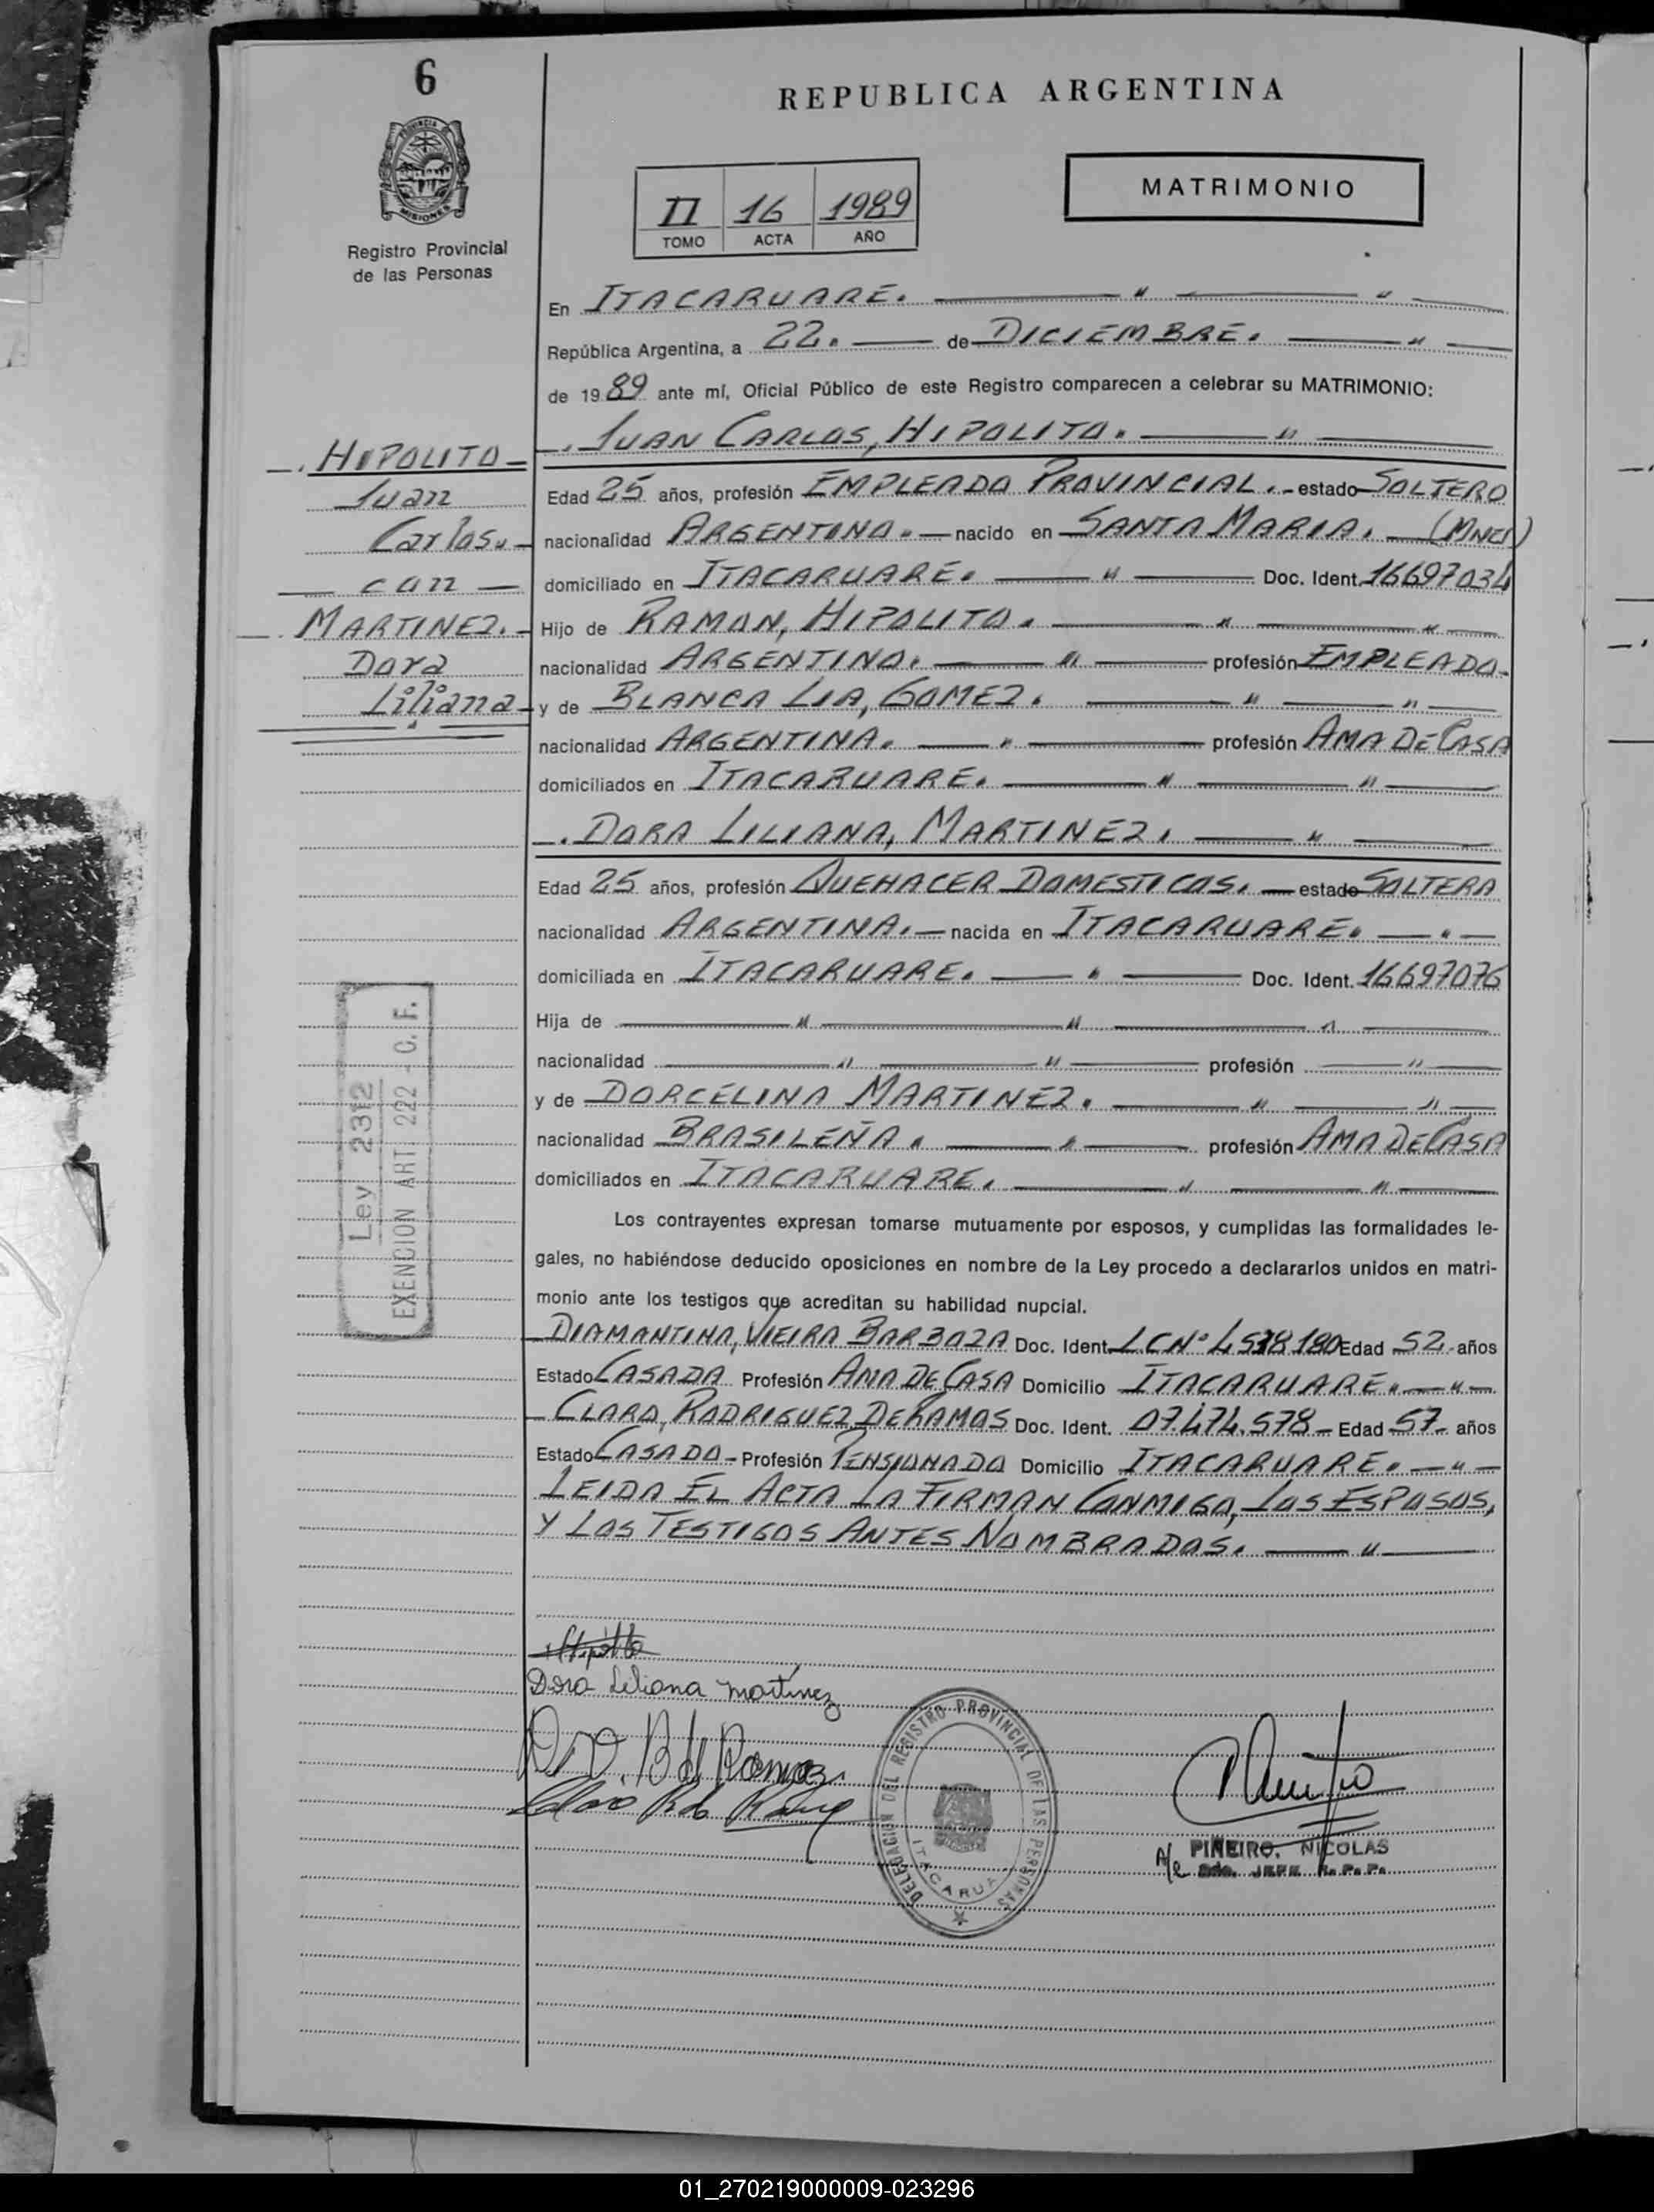 6
REPUBLICA ARGENTINA
PROVINCIA DE
MISIONES
Registro Provincial
de las Personas
II 16 1989
TOMO ACTA AÑO
MATRIMONIO
En ITACARUARE.
República Argentina, a 22. de DICIEMBRE.
de 1989 ante mí, Oficial Público de este Registro comparecen a celebrar su MATRIMONIO:
HIPOLITO
Juan
Carlos.
con
MARTINEZ.
Dora
Liliana
JUAN CARLOS, HIPOLITO.
Edad 25 años, profesión EMPLEADO PROVINCIAL. estado SOLTERO
nacionalidad ARGENTINO. nacido en SANTA MARIA. (MNES)
domiciliado en ITACARUARE. Doc. Ident. 16697034
Hijo de RAMON, HIPOLITO.
nacionalidad ARGENTINO. profesión EMPLEADO.
y de BLANCA LIA, GOMEZ.
nacionalidad ARGENTINA. profesión AMA DE CASA
domiciliados en ITACARUARE.
DORA LILIANA, MARTINEZ.
Edad 25 años, profesión QUEHACER DOMESTICOS. estado SOLTERA
nacionalidad ARGENTINA. nacida en ITACARUARE.
domiciliada en ITACARUARE. Doc. Ident. 16697076
Hija de
nacionalidad profesión
y de DORCELINA MARTINEZ.
nacionalidad BRASILEÑA. profesión AMA DE CASA
domiciliados en ITACARUARE.
Ley 2312
EXENCION ART. 222 - C. F.
Los contrayentes expresan tomarse mutuamente por esposos, y cumplidas las formalidades le-
gales, no habiéndose deducido oposiciones en nombre de la Ley procedo a declararlos unidos en matri-
monio ante los testigos que acreditan su habilidad nupcial.
DIAMANTINA, VIEIRA BARBOZA Doc. Ident. LCNº Edad 52 años
Estado CASADA Profesión AMA DE CASA Domicilio ITACARUARE.
CLARO, RODRIGUEZ DE RAMOS Doc. Ident. 07.474.578 Edad 57 años
Estado CASADO Profesión PENSIONADO Domicilio ITACARUARE.
LEIDA EL ACTA LA FIRMAN CONMIGO, LOS ESPOSOS,
Y LOS TESTIGOS ANTES NOMBRADOS.
Hipolito
Dora Liliana Martinez
DELEGACION DEL REGISTRO PROVINCIAL DE LAS PERSONAS
ITACARUARE
A/c PIÑEIRO, NICOLAS
JEFE R. P. P.
01_270219000009-023296